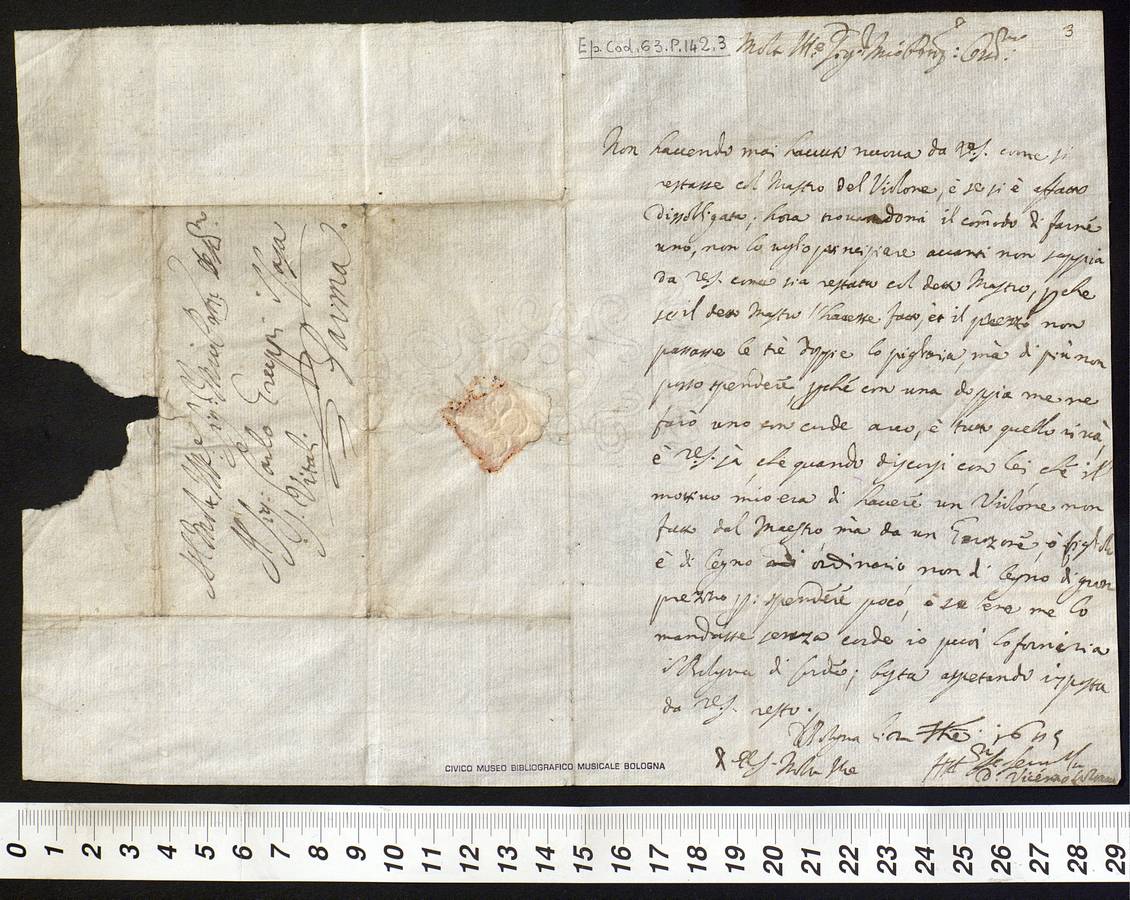 Ep. Cod. 63. P. 142. 3
3
Molt Ill.e Sig.r mio
Non hauendo mai hauuta nuoua da V.S. come si
restasse col Mastro del Violone, è se si è affatto
dissolligata; hora trouandomi il com̃odo di farne
uno, non lo uoglio principiare auanti non sappia
da V.S. come sia restata col detto Mastro, p̱che
se il detto Mastro l'hauesse fatto, et il prezzo non
passasse le trè doppie lo pigliaria, mà di più non
posso spendere, p̱ché con una doppia me ne
farò uno con corde arco, è tutto quello ci uà,
è V.S. sà che quando discorsi con lei ché il
mottiuo mio era di hauere un Violone non
fatto dal Maestro mà da un Garzone, ò figliolo
è di legno ordinario non di legno di gran
prezzo p: spendere poco, è se bene me lo
mandasse senza corde io poi lo forniria
Bologna di corde; basta aspetando risposta
da V.S. resto.
Bologna li
D. V.S. Molto Ill.e
D. Vicenzo
Al Molt Ill.e
Il Sig: Carlo
S. Vitale
Parma.
CIVICO MUSEO BIBLIOGRAFICO MUSICALE BOLOGNA
0 1 2 3 4 5 6 7 8 9 10 11 12 13 14 15 16 17 18 19 20 21 22 23 24 25 26 27 28 29